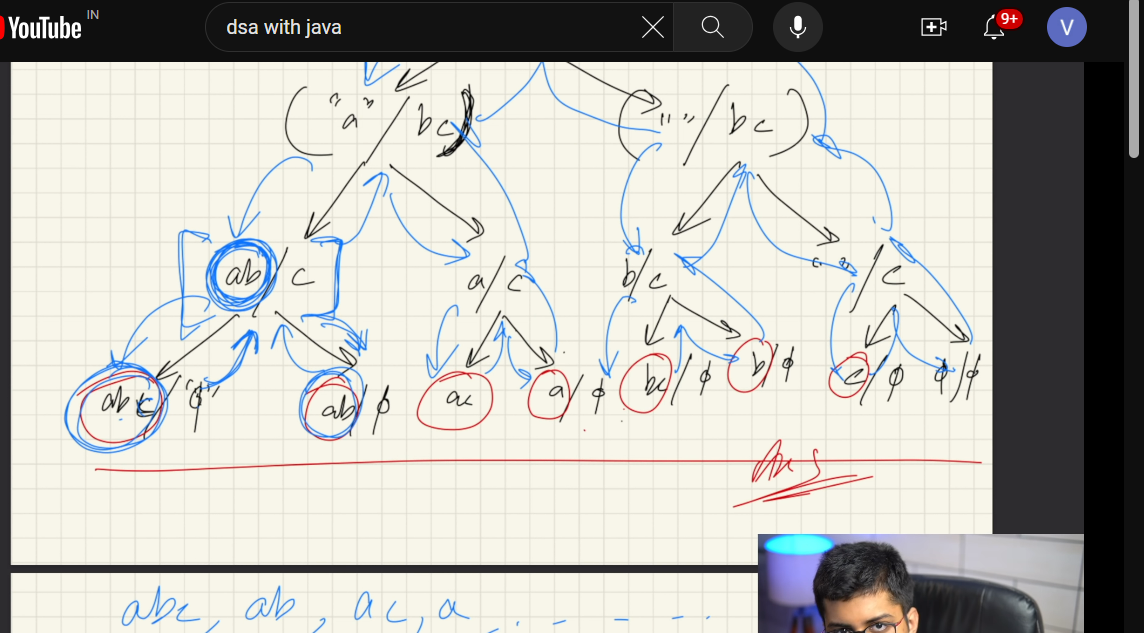 YouTube IN dsa with java 9+ V
( "a" / bc ) ( " " / bc )
ab / c a / c b / c " " / c
abc / "φ" ab / φ ac a / φ bc / φ b / φ c / φ φ / φ
Ans
abc, ab, ac, a . - - - .